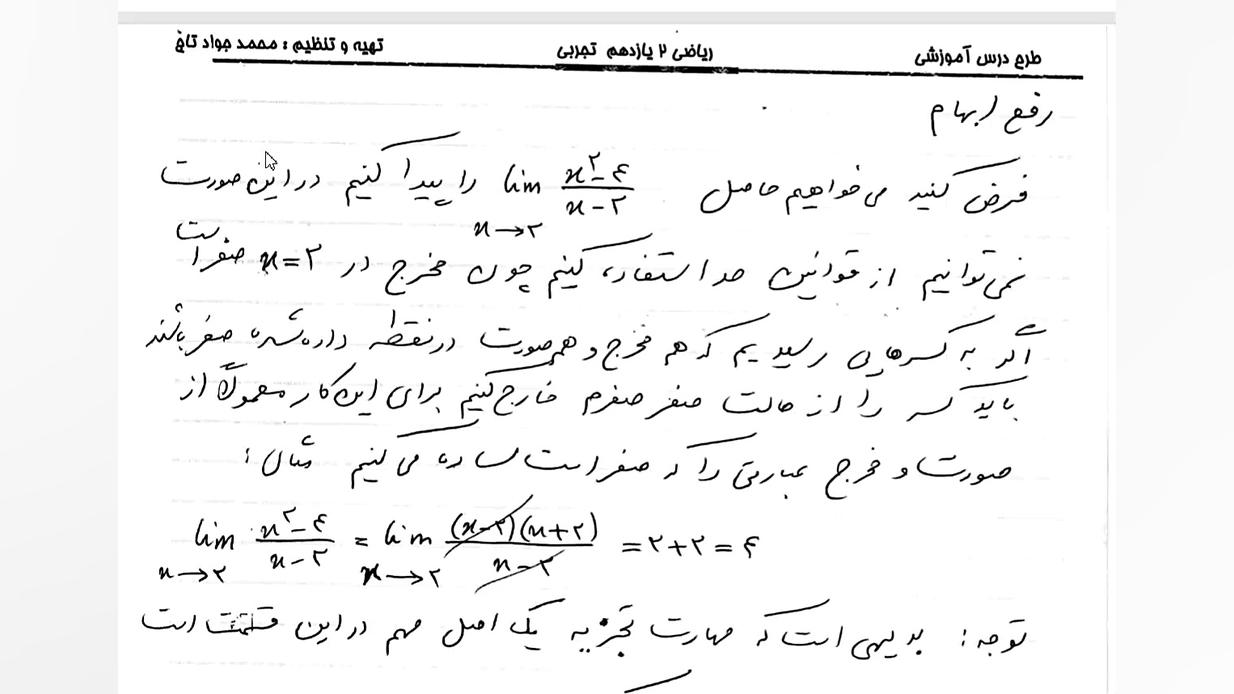 طرح درس آموزشی ریاضی ۲ یازدهم تجربی تهیه و تنظیم : محمد جواد تاج
رفع ابهام
فرض کنید می‌خواهیم حاصل lim x→۲ (x^۲-۴)/(x-۲) را پیدا کنیم در این صورت
نمی‌توانیم از قوانین حد استفاده کنیم چون مخرج در x=۲ صفر است
اگر به کسرهایی رسیدیم که هم مخرج و هم صورت در نقطه داده شده صفر باشند
باید کسر را از حالت صفر صفرم خارج کنیم برای این کار معمولاً از
صورت و مخرج عبارتی را که صفر است ساده می‌کنیم مثال :
lim x→۲ (x^۲-۴)/(x-۲) = lim x→۲ (x-۲)(x+۲)/(x-۲) = ۲+۲=۴
توجه : بدیهی است که مهارت تجزیه یک اصل مهم در این قسمت است